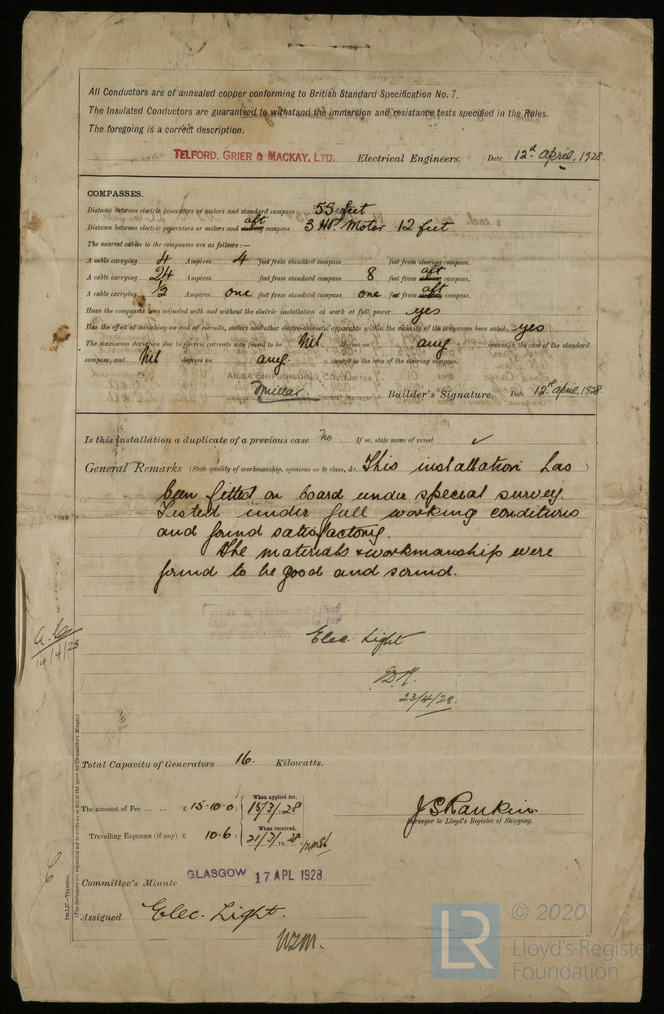 All Conductors are of annealed copper conforming to British Standard Specification No. 7.
The Insulated Conductors are guaranteed to withstand the immersion and resistance tests specified in the Rules.
The foregoing is a correct description.
TELFORD, GRIER & MACKAY, LTD. Electrical Engineers. Date 12th April, 1928.
COMPASSES.
Distance between electric generators or motors and standard compass 55 feet
Distance between electric generators or motors and aft compass 3 HP. Motor 12 feet
The nearest cables to the compasses are as follows:—
A cable carrying 4 Ampères 4 feet from standard compass feet from steering compass.
A cable carrying 24 Ampères feet from standard compass 8 feet from aft compass.
A cable carrying 1/2 Ampères one feet from standard compass one feet from aft compass.
Have the compasses been adjusted with and without the electric installation at work at full power yes
Has the effect of switching on and off circuits, motors and other electro-magnetic apparatus within the vicinity of the compasses been noted yes
The maximum deviation due to electric currents was found to be Nil degrees on any course in the case of the standard
compass, and Nil degrees on any course in the case of the steering compass.
AILSA SHIPBUILDING CO. LIMITED
Millar Builder's Signature. Date 12th April, 1928
Is this installation a duplicate of a previous case No If so, state name of vessel ✓
General Remarks (State quality of workmanship, opinions as to class, &c. This installation has
been fitted on board under special survey.
Tested under full working conditions
and found satisfactory.
The materials & workmanship were
found to be good and sound.
14/4/28
Elec. Light
23/4/28.
Total Capacity of Generators 16. Kilowatts.
The amount of Fee ... ... £ 15.10.0. When applied for, 15/3/28
J S Rankin
Surveyor to Lloyd's Register of Shipping.
Travelling Expenses (if any) £ 10.6. When received, 21/3/1928
Committee's Minute GLASGOW 17 APL 1928
Assigned Elec. Light.
Im.LF.—Transfer.
LR © 2020
Lloyd's Register
Foundation